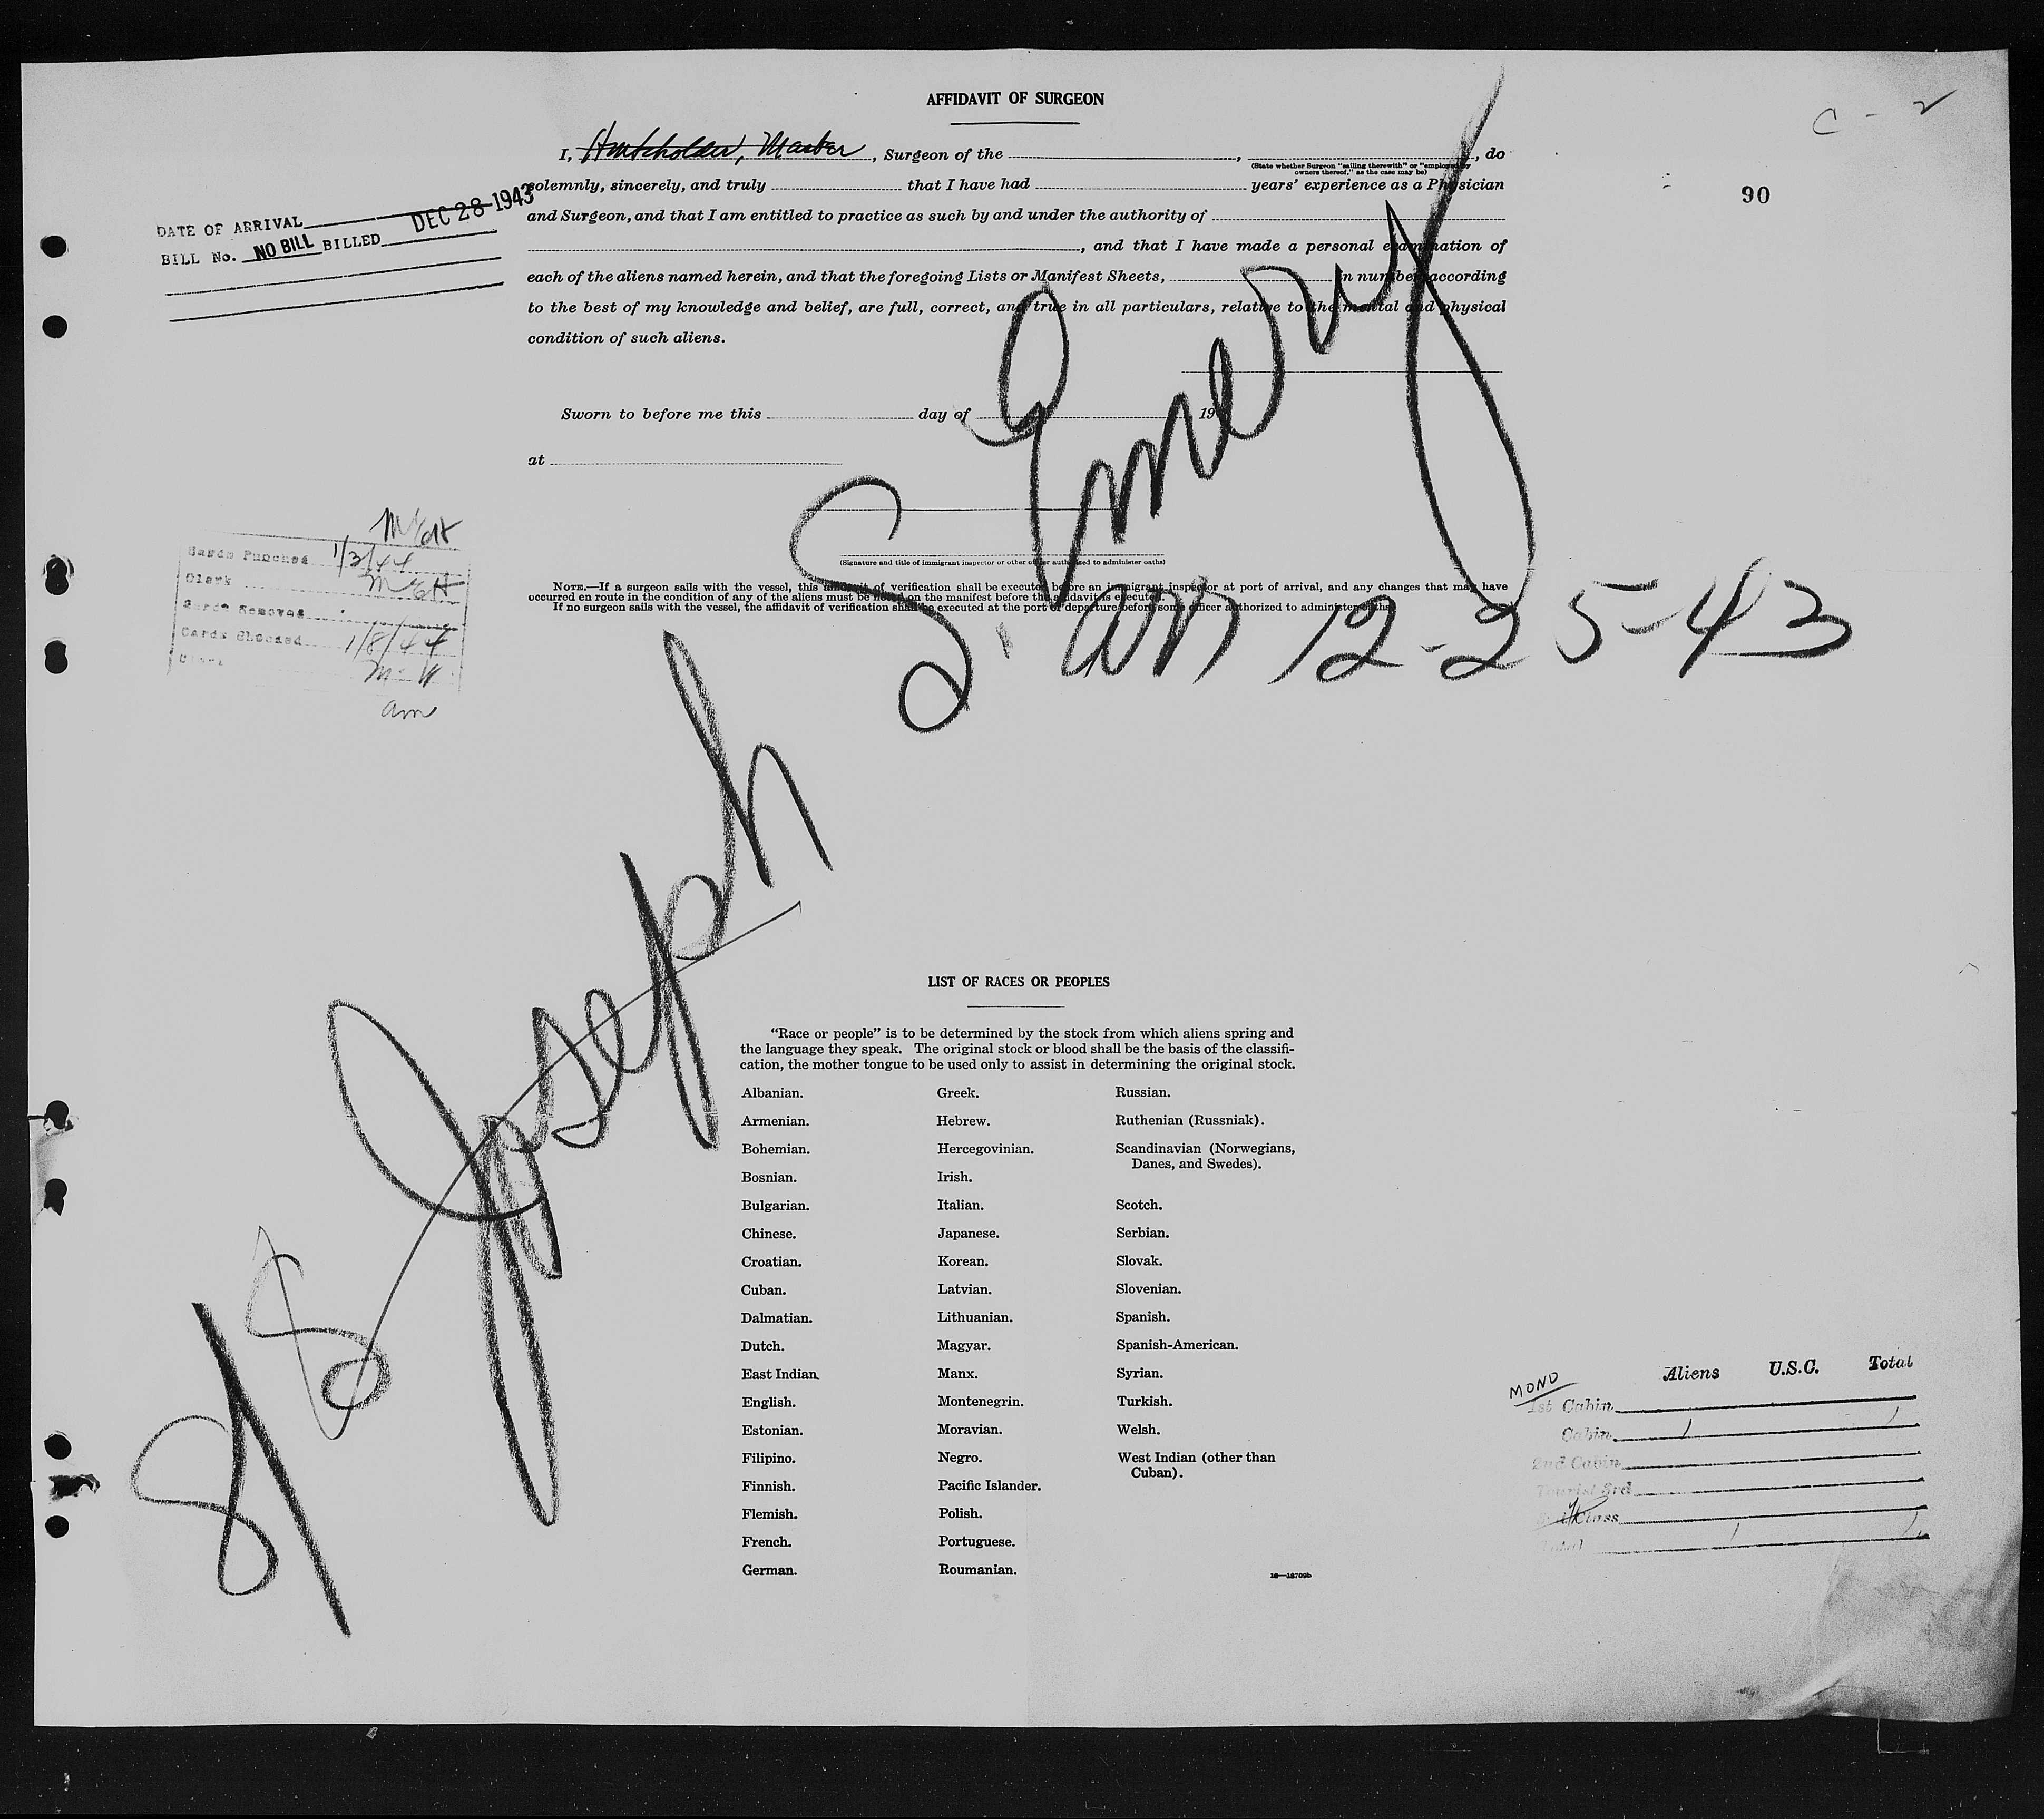 AFFIDAVIT OF SURGEON
C - 2
90
I, , Master, Surgeon of the , , do
(State whether Surgeon "sailing therewith" or "employed by owners thereof," as the case may be)
solemnly, sincerely, and truly that I have had years' experience as a Physician
and Surgeon, and that I am entitled to practice as such by and under the authority of
, and that I have made a personal examination of
each of the aliens named herein, and that the foregoing Lists or Manifest Sheets, in number, according
to the best of my knowledge and belief, are full, correct, and true in all particulars, relative to the mental and physical
condition of such aliens.
DATE OF ARRIVAL
DEC 28 1943
BILL No. NO BILL BILLED
Sworn to before me this day of 19
at
(Signature and title of immigrant inspector or other officer authorized to administer oaths)
NOTE.—If a surgeon sails with the vessel, this affidavit of verification shall be executed before an immigrant inspector at port of arrival, and any changes that may have
occurred en route in the condition of any of the aliens must be noted on the manifest before the affidavit is executed.
If no surgeon sails with the vessel, the affidavit of verification shall be executed at the port of departure before some officer authorized to administer oaths.
Cards Punched 1/3/44
Clerk
Cards Removed
Cards Checked 1/8/44
Clerk
am
S/S Joseph S. Emery
arr 12-25-43
LIST OF RACES OR PEOPLES
"Race or people" is to be determined by the stock from which aliens spring and
the language they speak. The original stock or blood shall be the basis of the classifi-
cation, the mother tongue to be used only to assist in determining the original stock.
Albanian.
Armenian.
Bohemian.
Bosnian.
Bulgarian.
Chinese.
Croatian.
Cuban.
Dalmatian.
Dutch.
East Indian
English.
Estonian.
Filipino.
Finnish.
Flemish.
French.
German.
Greek.
Hebrew.
Hercegovinian.
Irish.
Italian.
Japanese.
Korean.
Latvian.
Lithuanian.
Magyar.
Manx.
Montenegrin.
Moravian.
Negro.
Pacific Islander.
Polish.
Portuguese.
Roumanian.
Russian.
Ruthenian (Russniak).
Scandinavian (Norwegians,
Danes, and Swedes).
Scotch.
Serbian.
Slovak.
Slovenian.
Spanish.
Spanish-American.
Syrian.
Turkish.
Welsh.
West Indian (other than
Cuban).
Aliens U.S.C. Total
MONO
1st Cabin
Cabin 1 1
2nd Cabin
Tourist 3rd
Class
Total 1 1